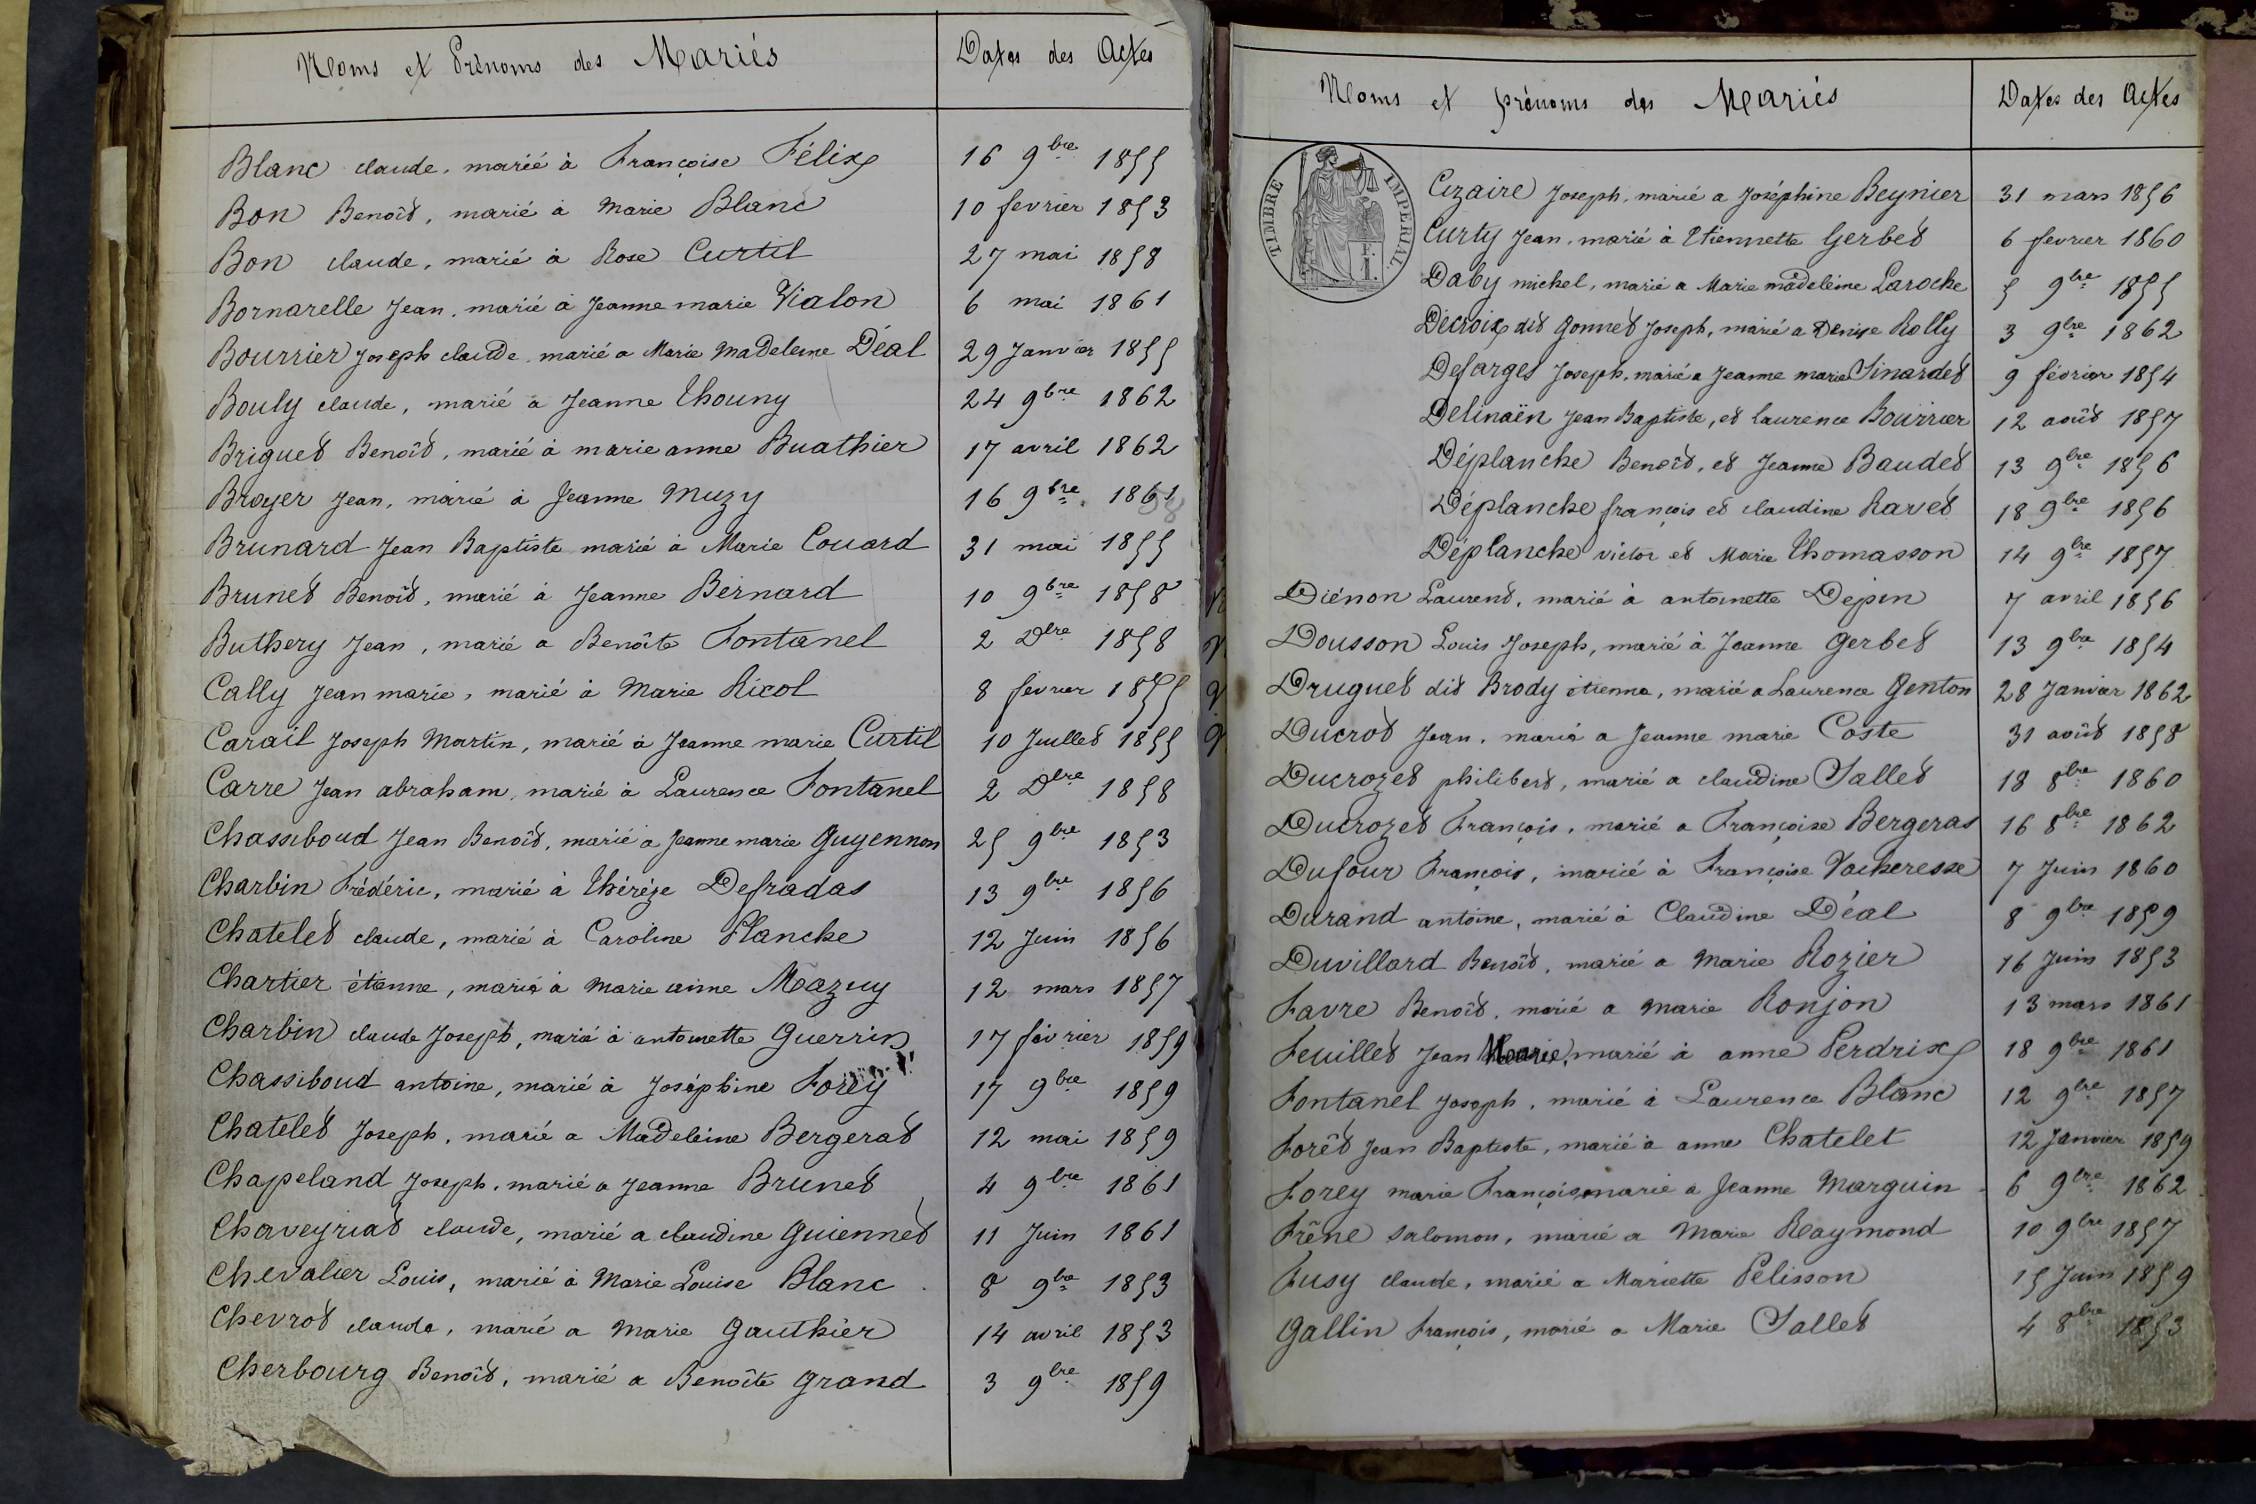 Noms et Prénoms des Mariés
Dates des Actes
Blanc claude, marié à Françoise Félix 16 9bre 1855
Bon Benoît, marié à Marie Blanc 10 fevrier 1853
Bon claude, marié à Rose Curtil 27 mai 1858
Bornarelle Jean, marié à Jeanne marie Vialon 6 mai 1861
Bourrier Joseph claude, marié a Marie Madeleine Déal 29 Janvier 1855
Bouly claude, marié a Jeanne Thouny 24 9bre 1862
Briguet Benoît, marié à marie anne Buathier 17 avril 1862
Broyer Jean, marié à Jeanne Muzy 16 9bre 1861
58
Brunard Jean Baptiste marié à Marie Couard 31 mai 1855
Brunet Benoît, marié à Jeanne Bernard 10 9bre 1858
Buthery Jean, marié a Benoîte Fontanel 2 Dbre 1858
Cally Jean marie, marié à Marie Ricol 8 fevrier 1855
Caraït Joseph Martin, marié à Jeanne marie Curtil 10 Juillet 1855
Carre Jean abraham, marié à Laurence Fontanel 2 Dbre 1858
Chassiboud Jean Benoît, marié à Jeanne marie Guyennon 25 9bre 1853
Charbin Frédéric, marié à Thérèze Defradas 13 9bre 1856
Chatelet claude, marié à Caroline Plancke 12 Juin 1856
Chartier étienne, marié à Marie anne Mazuy 12 mars 1857
Charbin claude Joseph, marié à antoinette Guerrin 17 février 1859
Chassiboud antoine, marié à Joséphine Forey 17 9bre 1859
Chatelet Joseph, marié a Madeleine Bergerat 12 mai 1859
Chapeland Joseph, marié a Jeanne Brunet 4 9bre 1861
Chaveyriat claude, marié a claudine Guiennet 11 Juin 1861
Chevalier Louis, marié à Marie Louise Blanc 8 9bre 1853
Chevrot claude, marié a Marie Gauthier 14 avril 1853
Cherbourg Benoît, marié a Benoîte Grand 3 9bre 1859
Noms et prénoms des Mariés
Dates des Actes
TIMBRE IMPERIAL
Cizaire Joseph, marié a Joséphine Beynier 31 mars 1856
Curty Jean, marié à Etiennette Gerbet 6 fevrier 1860
Daby michel, marié a Marie madeleine Laroche 5 9bre 1855
Décroix dit Gonnet Joseph, marié a Denise Rolly 3 9bre 1862
Defarges Joseph, marié a Jeanne marie Sinardet 9 février 1854
Delinaën Jean Baptiste, et laurence Bourrier 12 août 1857
Déplancke Benoît, et Jeanne Baudet 13 9bre 1856
Déplancke françois et claudine Ravet 18 9bre 1856
Déplancke victor et Marie Thomasson 14 9bre 1857
Diénon Laurent, marié à antoinette Depin 7 avril 1856
Dousson Louis Joseph, marié à Jeanne Gerbet 13 9bre 1854
Druguet dit Brody étienne, marié a Laurence Genton 28 Janvier 1862
Ducrot Jean, marié a Jeanne marie Coste 31 août 1858
Ducrozet philibert, marié a claudine Sallet 18 8bre 1860
Ducrozet François, marié a Françoise Bergeras 16 8bre 1862
Dufour François, marié à Françoise Vacheresse 7 Juin 1860
Durand antoine, marié à Claudine Déal 8 9bre 1859
Duvillard Benoît, marié a Marie Rozier 16 Juin 1853
Favre Benoît, marié a Marie Ronjon 13 mars 1861
Feuillet Jean Marie, marié à anne Perdrix 18 9bre 1861
Fontanel Joseph, marié à Laurence Blanc 12 9bre 1857
Forêt Jean Baptiste, marié à anne Chatelet 12 Janvier 1859
Forey marie François, marié a Jeanne Marguin 6 9bre 1862
Frêne Salomon, marié a Marie Raymond 10 9bre 1857
Fusy claude, marié a Mariette Pelisson 15 Juin 1859
Gallin François, marié a Marie Sallet 4 8bre 1853